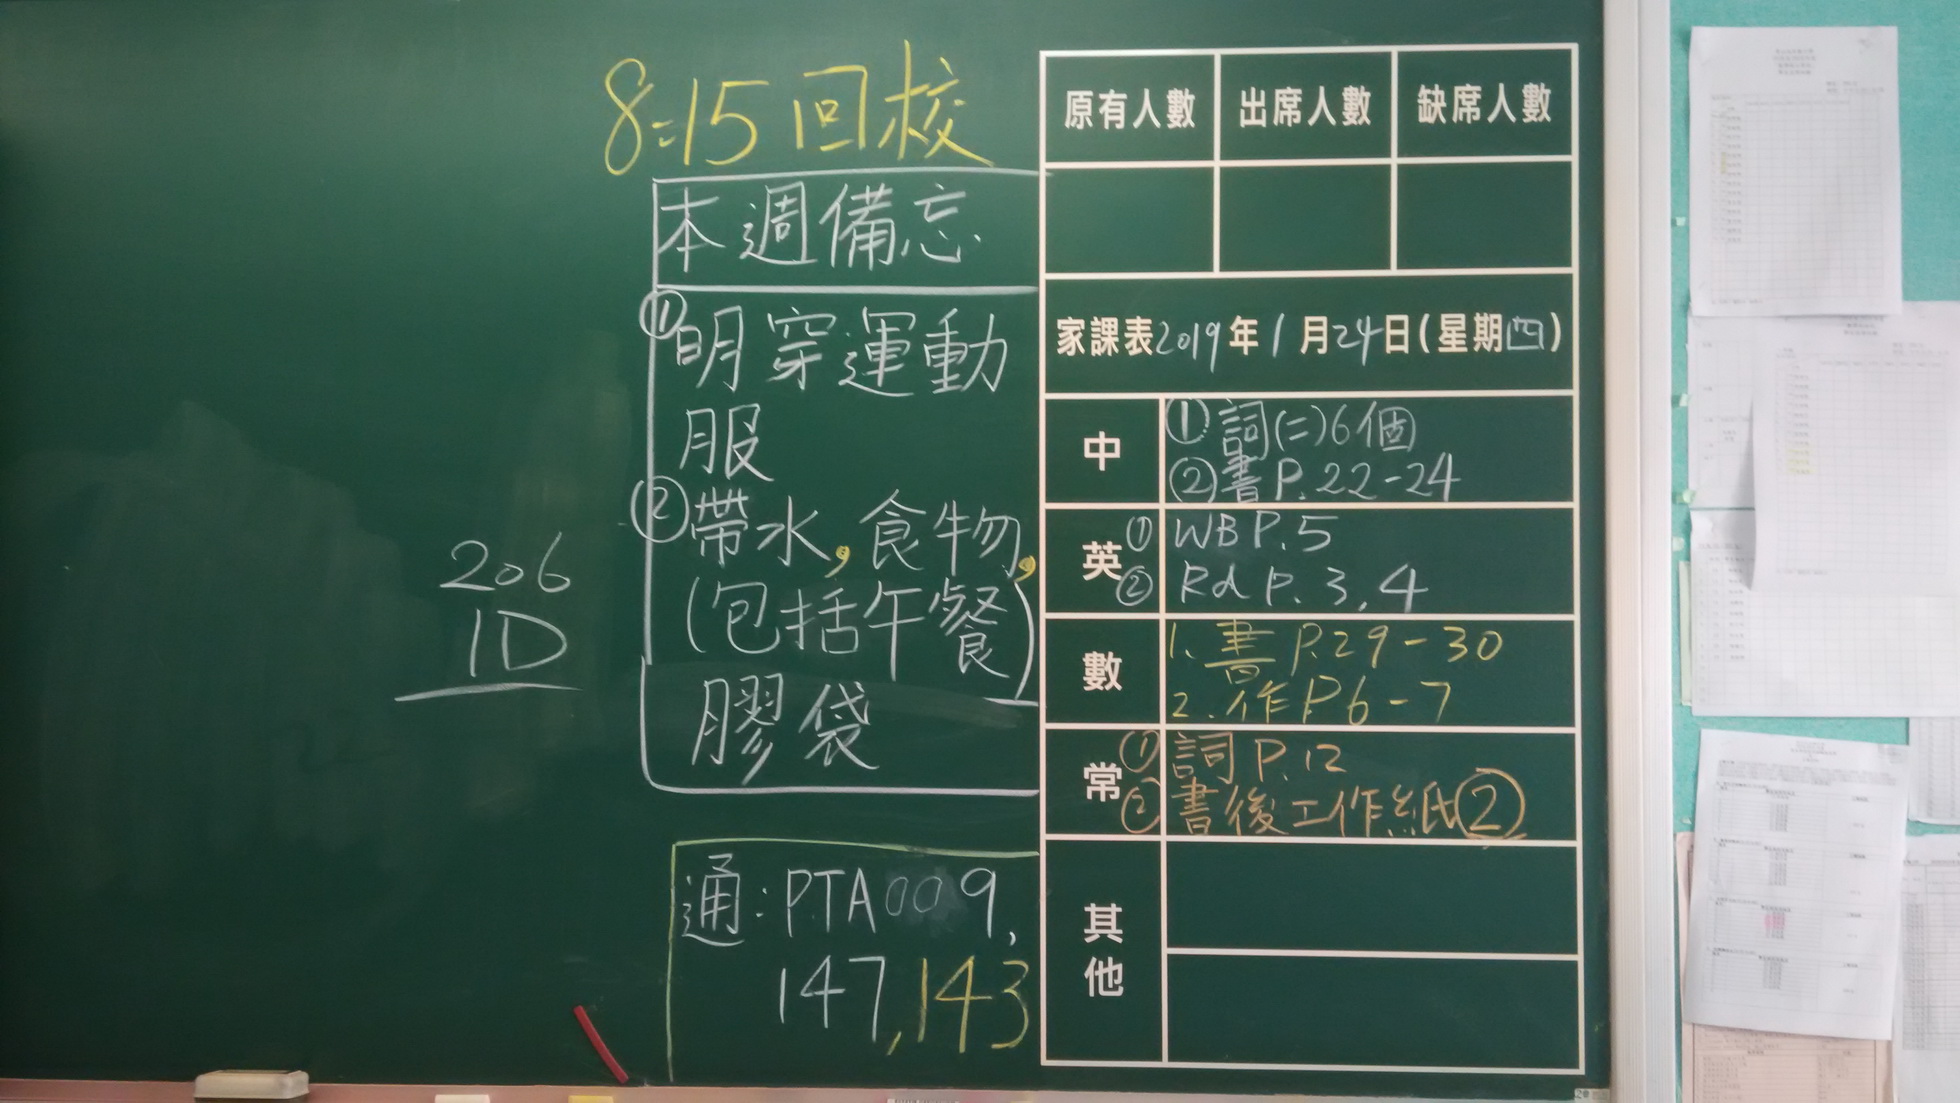 8:15回校
本週備忘
①明穿運動
服
②帶水,食物,
(包括午餐)
膠袋
206
1D
通:PTA009,
147,143
原有人數 出席人數 缺席人數
家課表2019年1月24日(星期四)
中 ①詞(二)6個
②書P.22-24
英 ①WB P.5
②Rd P.3,4
數 1.書P.29-30
2.作P6-7
常 ①詞P.12
②書後工作紙②
其他